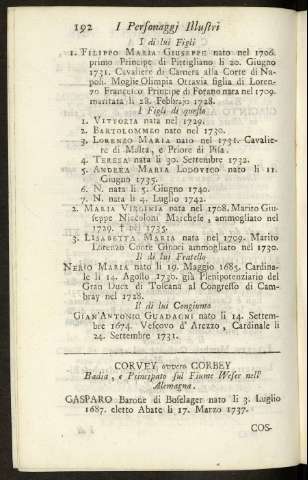 192 I Personaggj Illustri
I di lui Figli
1. FILIPPO MARIA GIUSEPPE nato nel 1706.
primo Principe di Pittigliano li 20. Giugno
1731. Cavaliere di Camera alla Corte di Na-
poli. Moglie Olimpia Ottavia figlia di Loren-
zo Francesco Principe di Forano nata nel 1709.
maritata li 28. Febbrajo 1728.
I Figli di questo
1. VITTORIA nata nel 1729.
2. BARTOLOMMEO nato nel 1730.
3. LORENZO MARIA nato nel 1731. Cavalie-
re di Malta, e Priore di Pisa.
4. TERESA nata li 30. Settembre 1732.
5. ANDREA MARIA LODOVICO nato li 11.
Giugno 1735.
6. N. nata li 5. Giugno 1740.
7. N. nata li 4. Luglio 1742.
2. MARIA VIRGINIA nata nel 1708. Marito Giu-
seppe Niccoloni Marchese, ammogliato nel
1729. † nel 1735.
3. LISABETTA MARIA nata nel 1709. Marito
Lorenzo Conte Ginori ammogliato nel 1730.
Il di lui Fratello
NERIO MARIA nato li 19. Maggio 1685. Cardina-
le li 14. Agosto 1730. già Plenipotenziario del
Gran Duca di Toscana al Congresso di Cam-
bray nel 1728.
Il di lui Congiunto
GIAN'ANTONIO GUADAGNI nato li 14. Settem-
bre 1674. Vescovo d'Arezzo, Cardinale li
24. Settembre 1731.
CORVEY, ovvero CORBEY
Badia, e Principato sul Fiume Weser nell'
Allemagna.
GASPARO Barone di Boselager nato li 3. Luglio
1687. eletto Abate li 17. Marzo 1737.
COS-